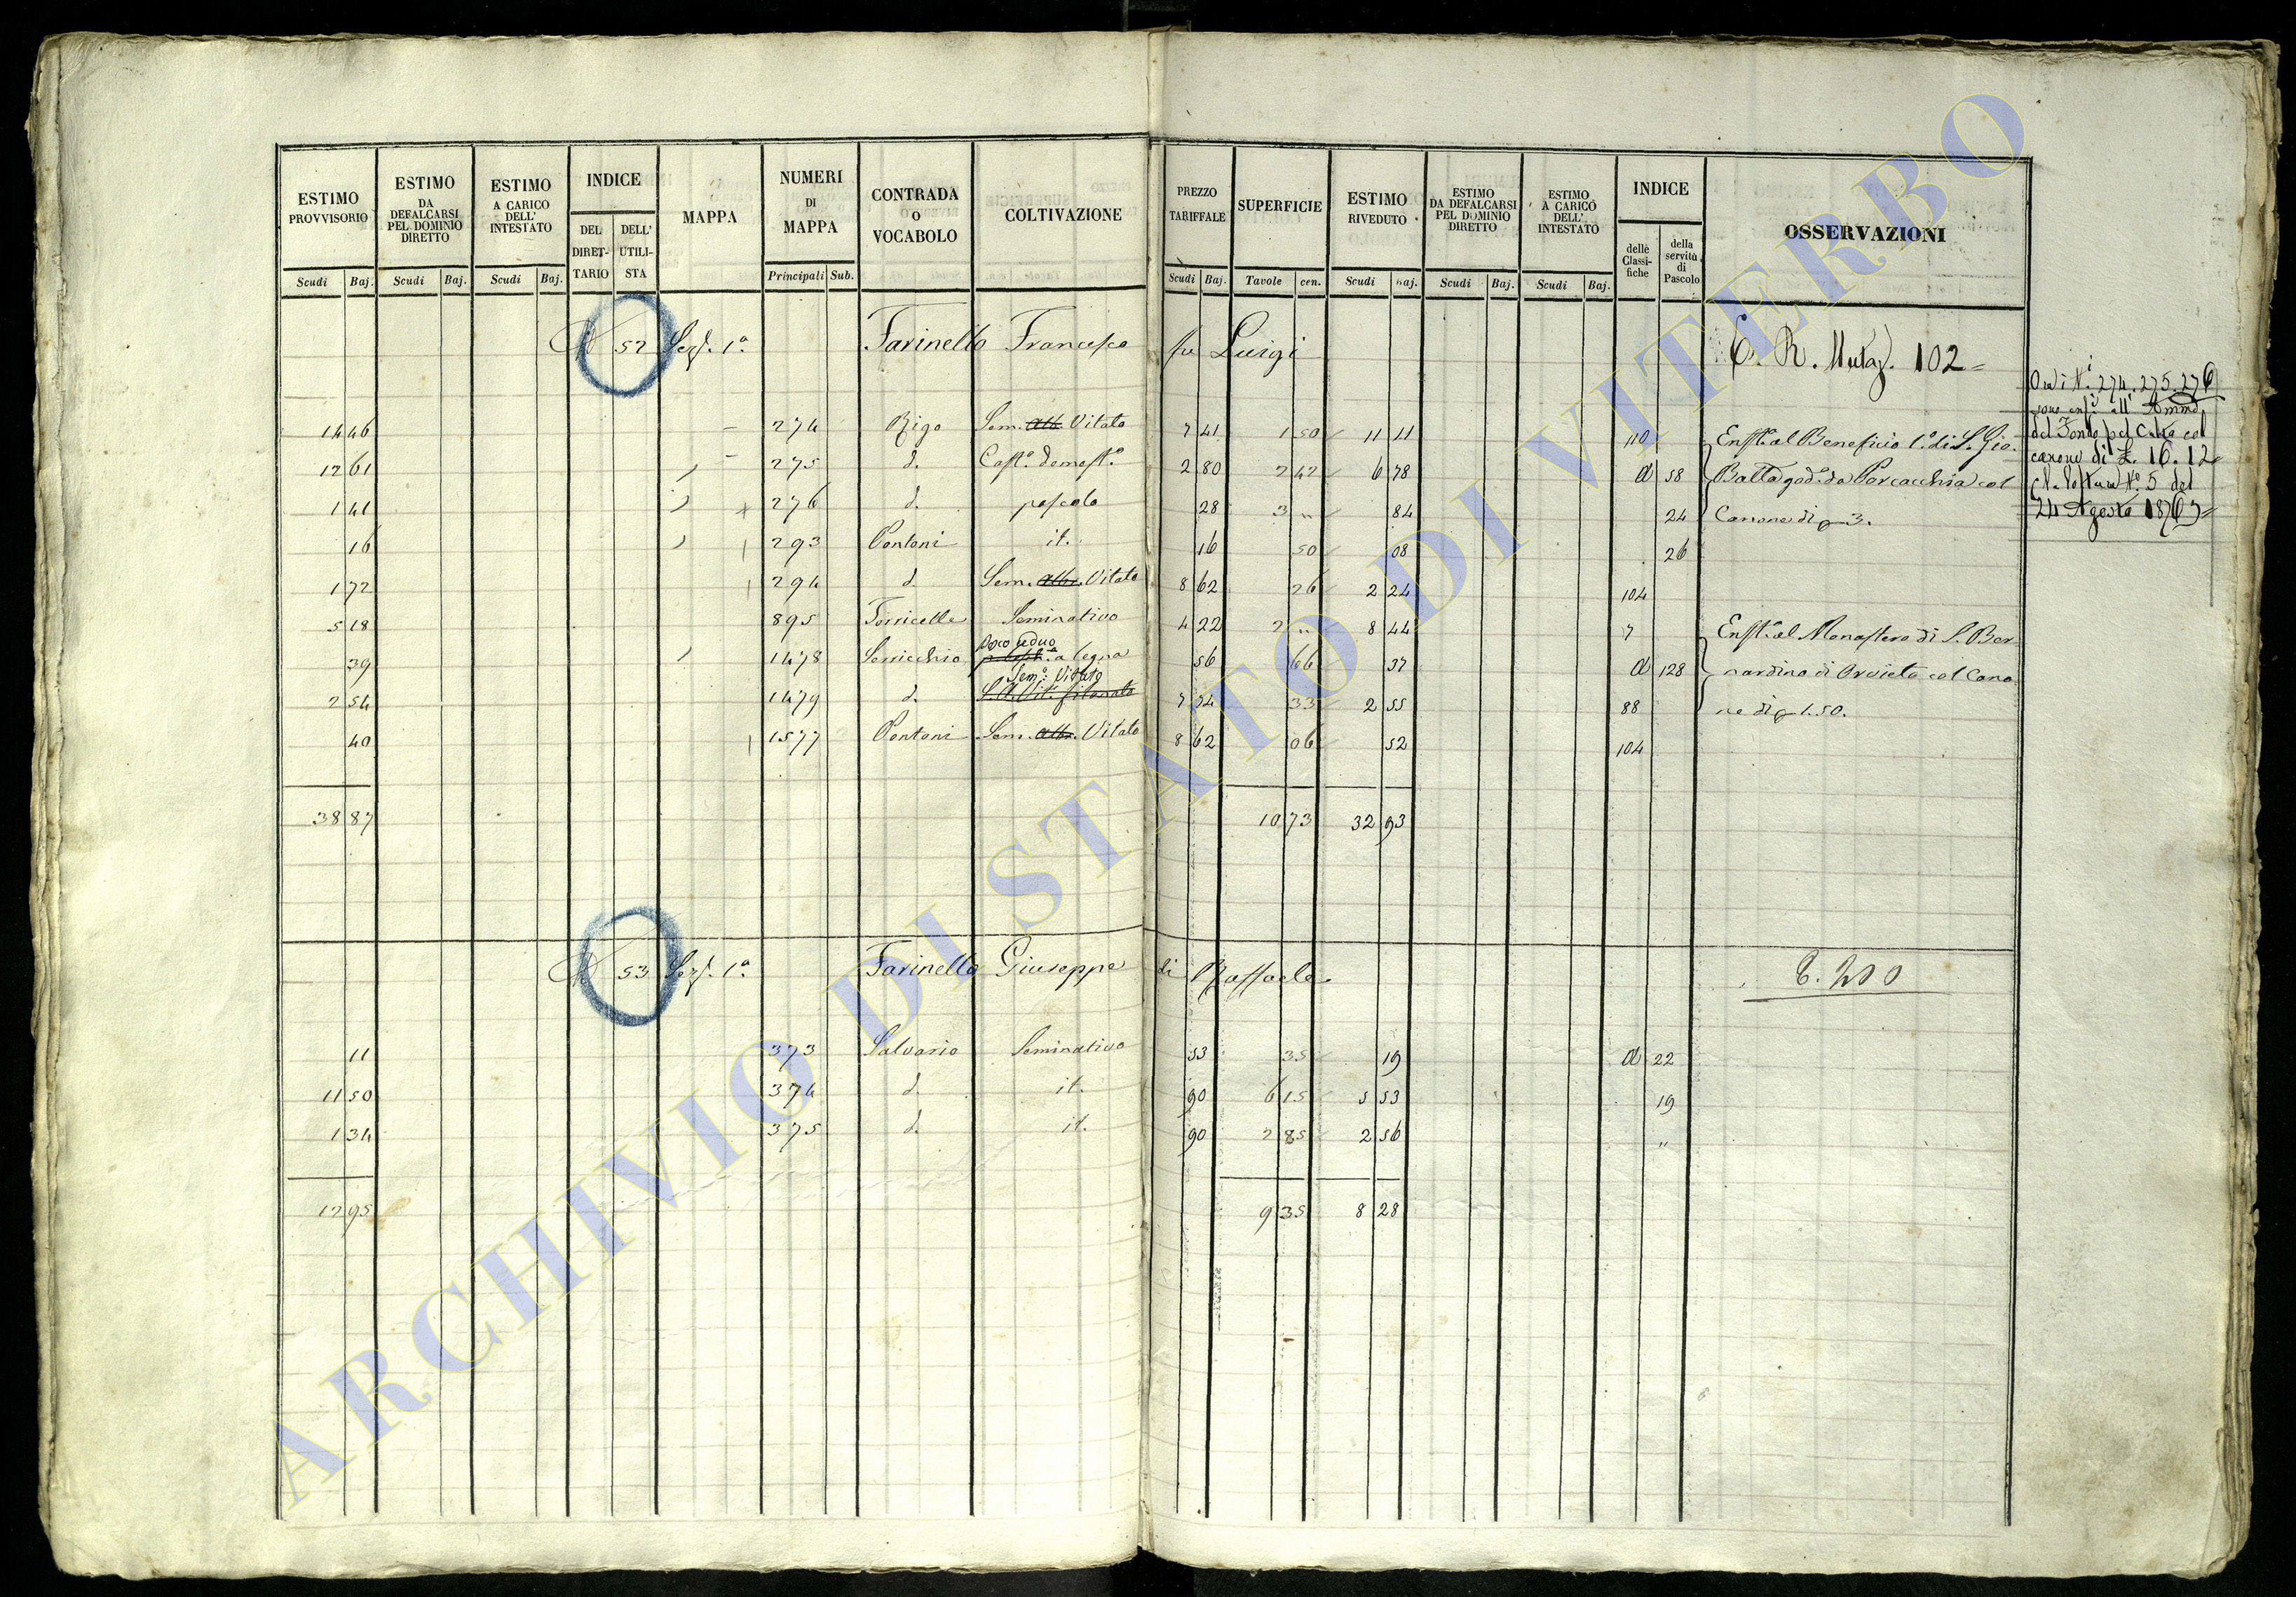 ESTIMO PROVVISORIO Scudi Baj. | ESTIMO DA DEFALCARSI PEL DOMINIO DIRETTO Scudi Baj. | ESTIMO A CARICO DELL' INTESTATO Scudi Baj. | INDICE DEL DIRETTARIO DELL' UTILISTA | MAPPA | NUMERI DI MAPPA Principali Sub. | CONTRADA O VOCABOLO | COLTIVAZIONE | PREZZO TARIFFALE Scudi Baj. | SUPERFICIE Tavole cen. | ESTIMO RIVEDUTO Scudi Baj. | ESTIMO DA DEFALCARSI PEL DOMINIO DIRETTO Scudi Baj. | ESTIMO A CARICO DELL' INTESTATO Scudi Baj. | INDICE delle Classifiche della servitù di Pascolo | OSSERVAZIONI
52 Sez. 1ª Farinello Francesco fu Luigi
14 46 274 Rigo Sem. Alb. Vitato 7 41 1 50 11 11 110
12 61 275 d. Cast.º domest.º 2 80 2 42 6 78 d 58
1 41 276 d. pascolo 28 3 " 84 24
16 293 Pontoni it. 16 50 08 26
1 72 294 d. Sem. Alb. Vitato 8 62 26 2 24 104
5 18 895 Torricella Seminativo 4 22 2 " 8 44 7
Bosco ceduo
39 1478 Serricchio a legna 56 66 37 d 128
Sem.º Vitato
2 54 1479 d. S. A. Vit. filonato 7 74 33 2 55 88
40 1577 Pontoni Sem. Alb. Vitato 8 62 06 52 104
38 87 10 73 32 93
C. R. Mutaz. 102
Enft. al Beneficio 1º di S. Gio.
Batta god. da Porcacchia col
Canone di 3.
Enft. al Monastero di S. Ber
nardino di Orvieto col Cano
ne di 1.50.
Ora i N.i 274. 275. 276
sono enf.i all' Ammne
del Fondo pel Culto col
canone di £. 16.12
Voltura Nº 5 del
24 Agosto 1876
53 Sez. 1ª Farinello Giuseppe di Raffaele
11 373 Salvario Seminativo 53 35 19 d 22
11 50 374 d. it. 90 6 15 5 53 19
1 34 375 d. it. 90 2 85 2 56 "
12 95 9 35 8 28
C. 200
ARCHIVIO DI STATO DI VITERBO